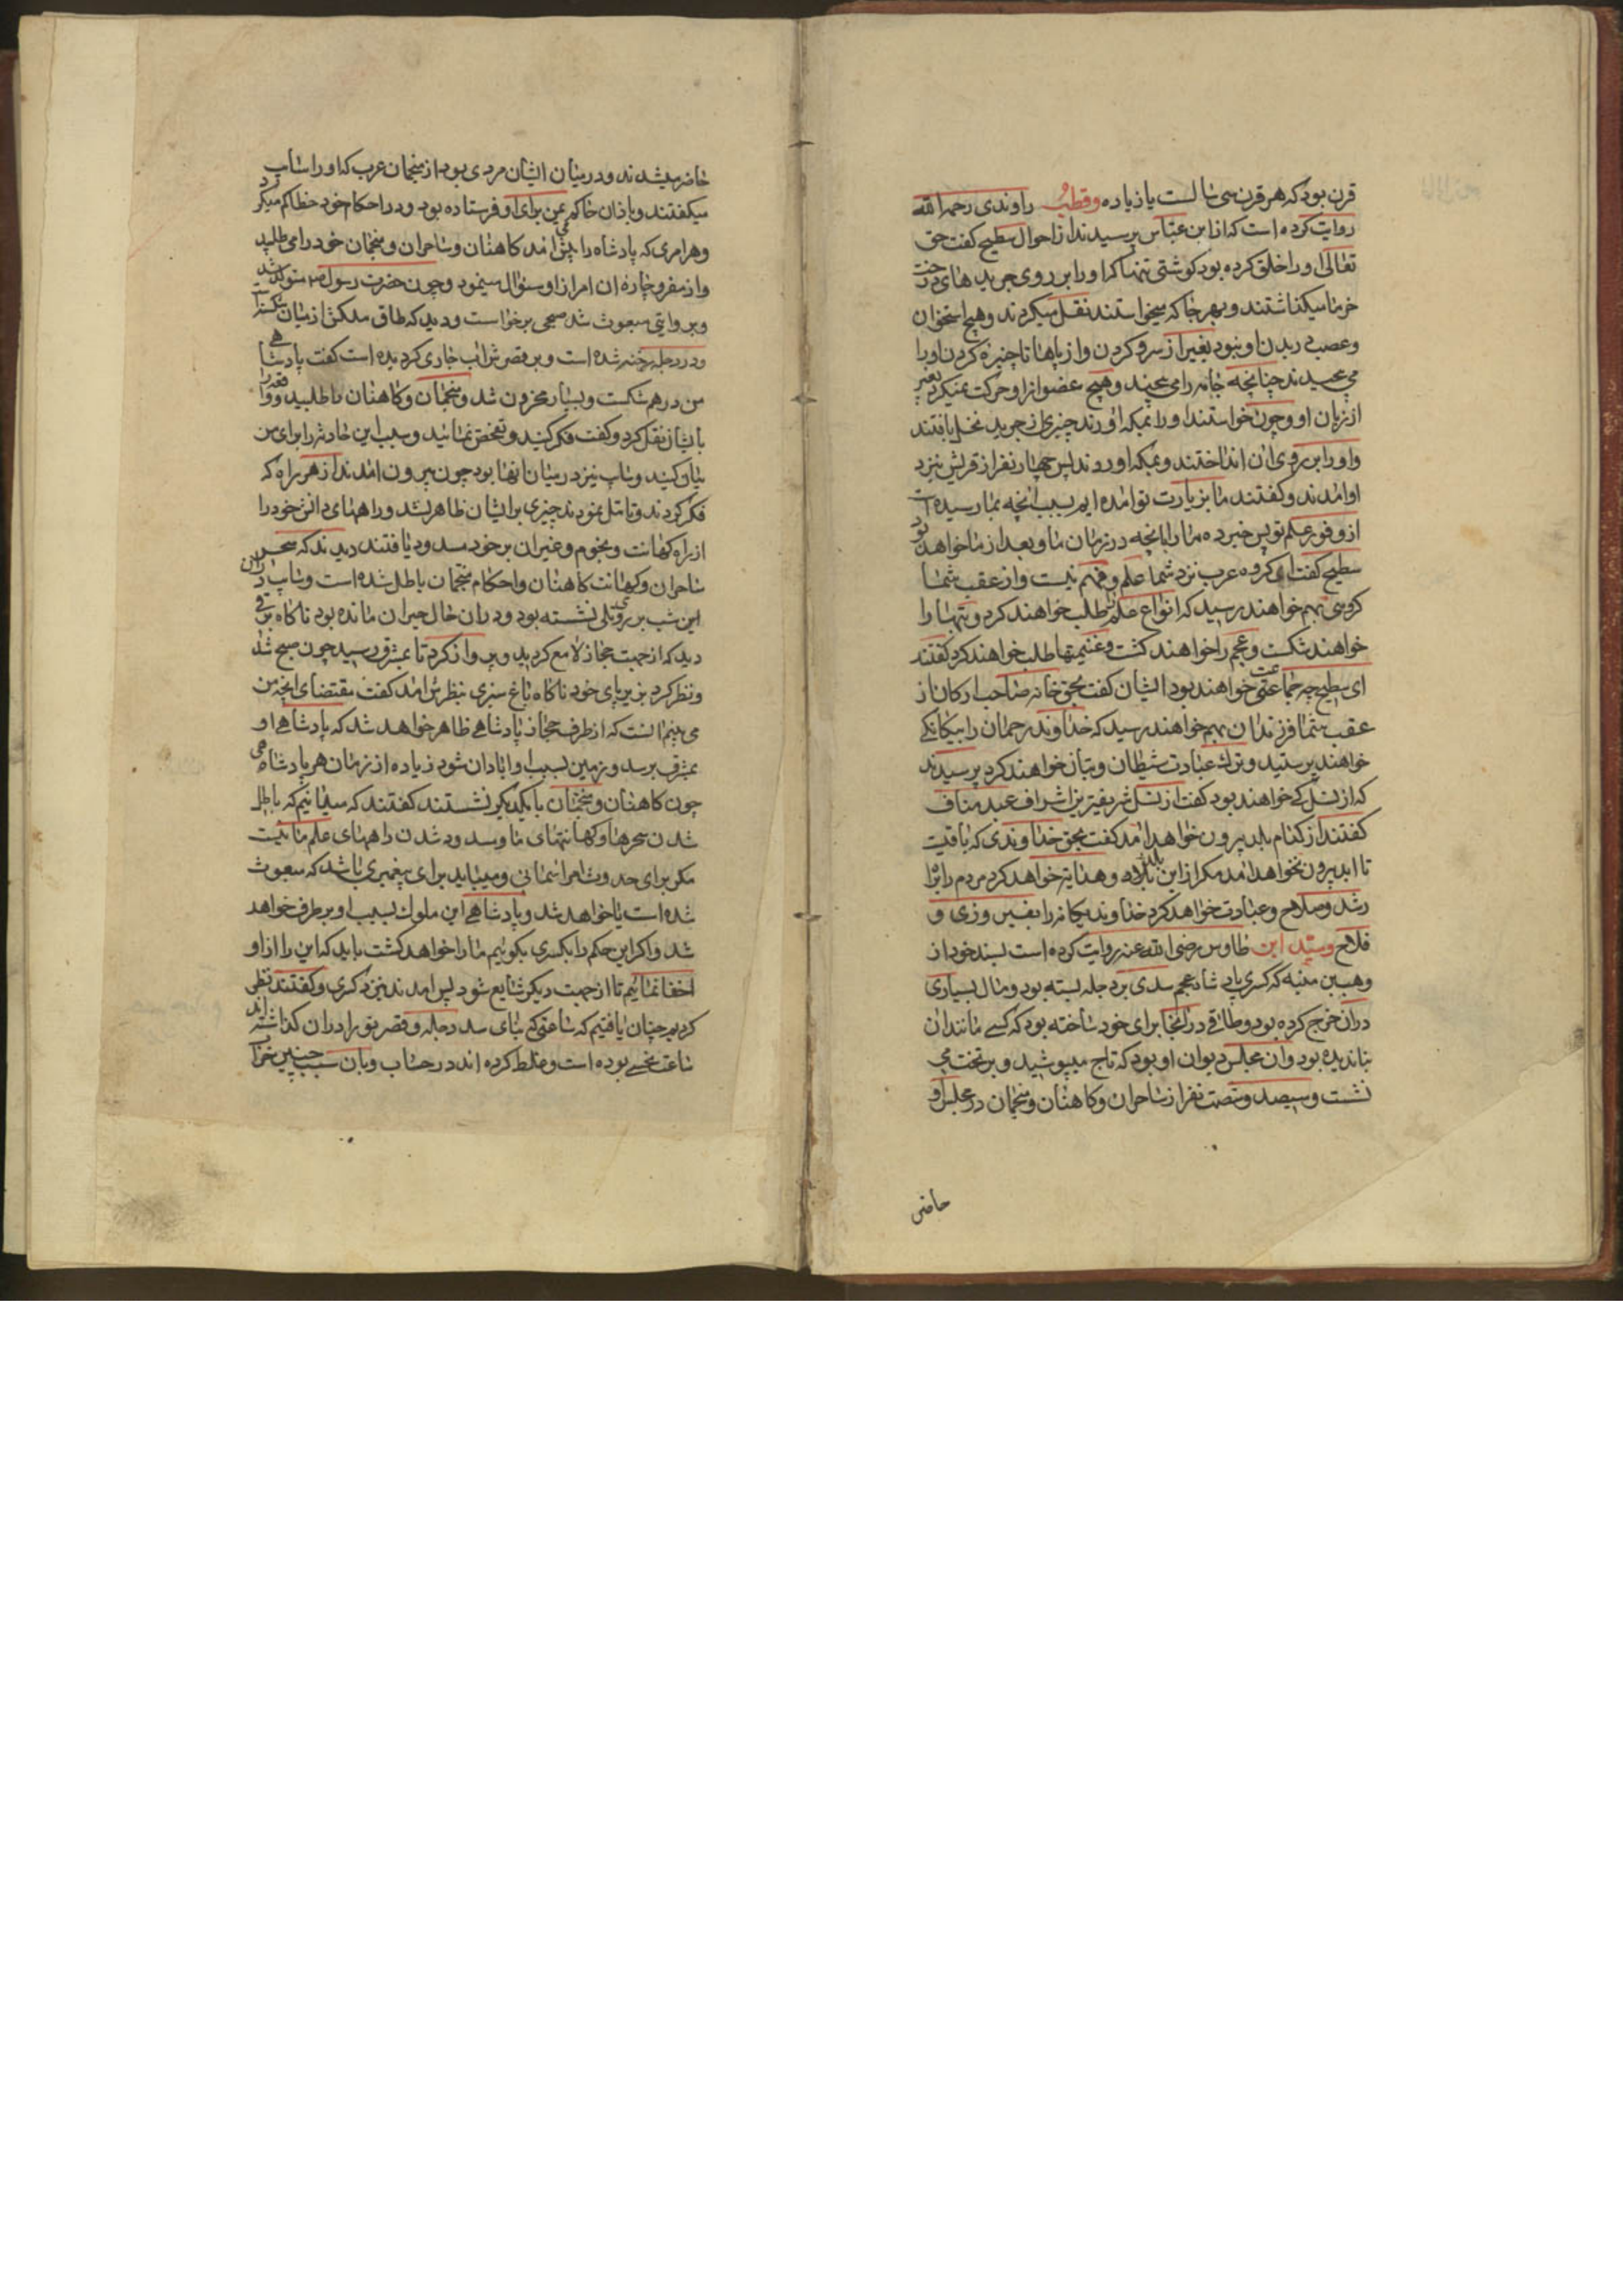 قرن بود که هر قرن سی سالست یا زیاده وقطب راوندی رحمه الله
روایت کرده است که از ابن عباس پرسیدند از احوال سطیح گفت حق
تعالی او را خلق کرده بود گوشتی تنها که او را بر روی جریدهای درخت
خرما میگذاشتند و بهر جا که میخواستند نقل میکردند و هیچ استخوان
و عصب در بدن او نبود بغیر از سر و گردن و از پاها تا چنبره گردن او را
می پیچیدند چنانچه جامه را می پیچند و هیچ عضو از او حرکت نمیکرد بغیر
از زبان او و چون خواستند او را بمکه اورند چیزی از جرید نخل بافتند
و او را بر روی ان انداختند و بمکه اوردند پس چهار نفر از قریش بنزد
او امدند و گفتند ما بزیارت تو امده ایم بسبب انچه بما رسیده است
از وفور علم تو پس خبر ده ما را بانچه در زمان ما و بعد از ما خواهد بود
سطیح گفت ای گروه عرب نزد شما علم و فهم نیست و از عقب شما
گروهی بهم خواهند رسید که انواع علم را طلب خواهند کرد و بتها را
خواهند شکست و عجم را خواهند کشت و غنیمتها طلب خواهند کرد گفتند
ای سطیح چه جماعتی خواهند بود ایشان گفت بحق خانه صاحب ارکان از
عقب شما فرزندان بهم خواهند رسید که خداوند رحمان را بیگانگی
خواهند پرستید و ترک عبادت شیطان و بتان خواهند کرد پرسیدند
که از نسل کی خواهند بود گفت از نسل شریفترین اشراف عبد مناف
گفتند از کدام بلد بیرون خواهد امد گفت بحق خداوندی که باقیست
تا ابد بیرون نخواهد امد مگر از این بلد و هدایت خواهد کرد مردم را براه
رشد و صلاح و عبادت خواهد کرد خداوند یگانه را بفیروزی و
فلاح وسید ابن طاوس رضی الله عنه روایت کرده است بسند خود از
وهب بن منبه که کسری پادشاه عجم سدی بر دجله بسته بود و مال بسیاری
در ان خرج کرده بود و طاقی در انجا برای خود ساخته بود که کسی مانند ان
بنا ندیده بود وان مجلس دیوان او بود که تاج میپوشید و بر تخت می
نشست و سیصد و شصت نفر از ساحران و کاهنان و منجمان در مجلس او
حاضر
حاضر میشدند و در میان ایشان مردی بود از منجمان عرب که او را سایب
میگفتند و باذان حاکم یمن برای او فرستاده بود و در احکام خود خطا کم میکرد
و هر امری که پادشاه را پیش می امد کاهنان و ساحران و منجمان خود را می طلبید
و از مفر و چاره ان امر از او سئوال مینمود و چون حضرت رسول ص متولد شد
و بروایتی مبعوث شد صبحی برخواست و دید که طاق ملکش از میان شکسته
و در دجله رخنه شده است و بر قصرش اب جاری گردیده است گفت پادشاهی
من درهم شکست و بسیار محزون شد و منجمان و کاهنان را طلبید و واقعه را
با ایشان نقل کرد و گفت فکر کنید و تفحص نمائید و سبب این حادثه را برای من
بیان کنید و سایب نیز در میان انها بود چون بیرون امدند از هر راه که
فکر کردند و تامل نمودند چیزی بر ایشان ظاهر نشد و راههای دانش خود را
از راه کهانت و نجوم و غیر ان بر خود مسدود یافتند دیدند که سحر
ساحران و کهانت کاهنان و احکام منجمان باطل شده است و سایب در ان
این شب بر روی تلی نشسته بود و در ان حال حیران مانده بود ناگاه برقی
دید که از جهت حجاز لامع گردید و پرواز کرد تا بمشرق رسید چون صبح شد
و نظر کرد بزیر پای خود ناگاه باغ سبزی بنظرش امد گفت مقتضای انچه من
می بینم انست که از طرف حجاز پادشاهی ظاهر خواهد شد که پادشاهی او
بمشرق برسد و زمین بسبب او ابادان شود زیاده از زمان هر پادشاهی
چون کاهنان و منجمان با یکدیگر نشستند گفتند که میدانیم که باطل
شدن سحرها و کهانتهای ما و مسدود شدن راههای علم ما نیست
مگر برای حدوث امر اسمانی و میباید برای پیغمبری باشد که مبعوث
شده است یا خواهد شد و پادشاهی این ملوک بسبب او برطرف خواهد
شد و اگر این حکم را بکسری بگوییم ما را خواهد کشت باید که این را از او
اخفا نمائیم تا از جهت دیگر شایع شود پس امدند بنزد کسری و گفتند نظر
کردیم چنان یافتیم که ساعتی که بنای سد دجله و قصر تو را در ان گذاشته اند
ساعت نحسی بوده است و غلط کرده اند در حساب و بان سبب چنین خراب